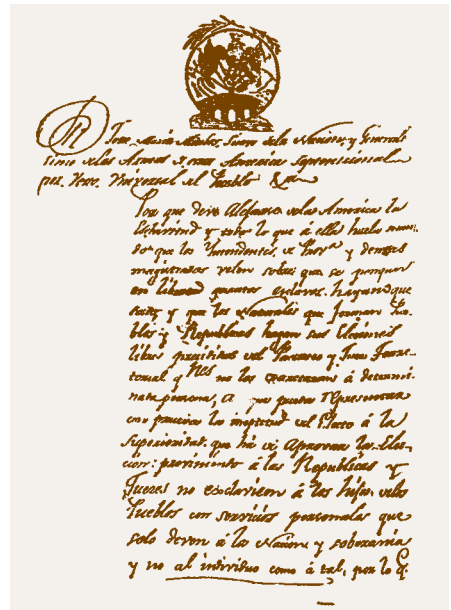 Dn. José María Morelos, Siervo de la Nacion, y Generali
simo de las Armas de esta America Septentrional
por Voto Universal del Pueblo &a.
Por que deve alejarse de la America la
Esclavitud y todo lo que á ella huela, man
do que los Yntendentes de Prova. y demas
magistrados velen sobre que se pongan
en libertad quantos esclavos hayan que
y que los Naturales que forman Pue
blos y Republicas hagan sus Elecciones
libres presididas del Parroco y Juez Territo
torial q nes no los á determi
nada persona, a que pueda representar
con prueba la ineptitud del Electo á la
Superioridad que ha de Aprovar la Elec
cion: previniendo á las Republicas y
Jueces no esclavicen á los hijos de los
Pueblos con servicios personales que
solo deven á la Nacion y soberanía
y no al individuo como á tal, por lo q.